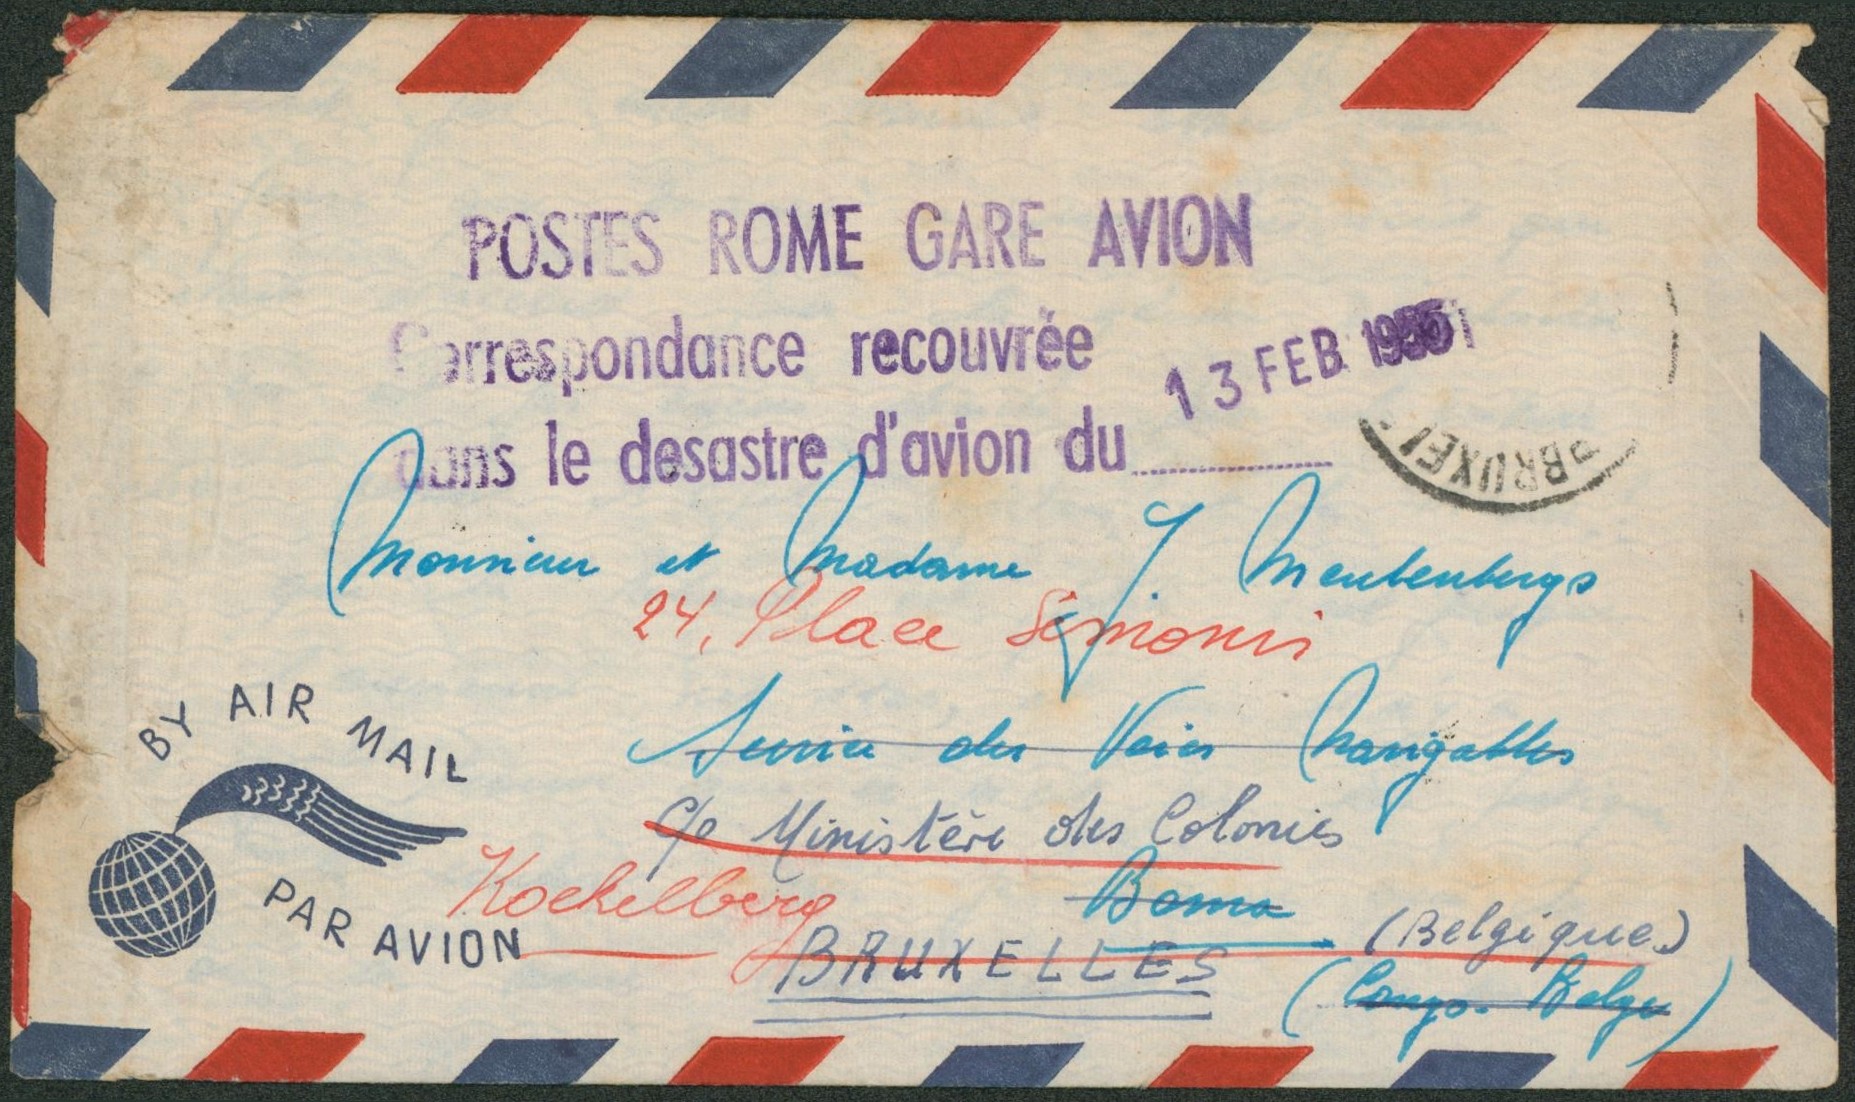 POSTES ROME GARE AVION
Correspondance recouvrée
13 FEB 195
dans le desastre d'avion du
BRUXEL
Monsieur et Madame J. Meulenbergs
24, Place Simonis
Service des Voies Navigables
c/o Ministère des Colonies
Koekelberg
Boma
BRUXELLES (Belgique)
(Congo Belge)
BY AIR MAIL
PAR AVION